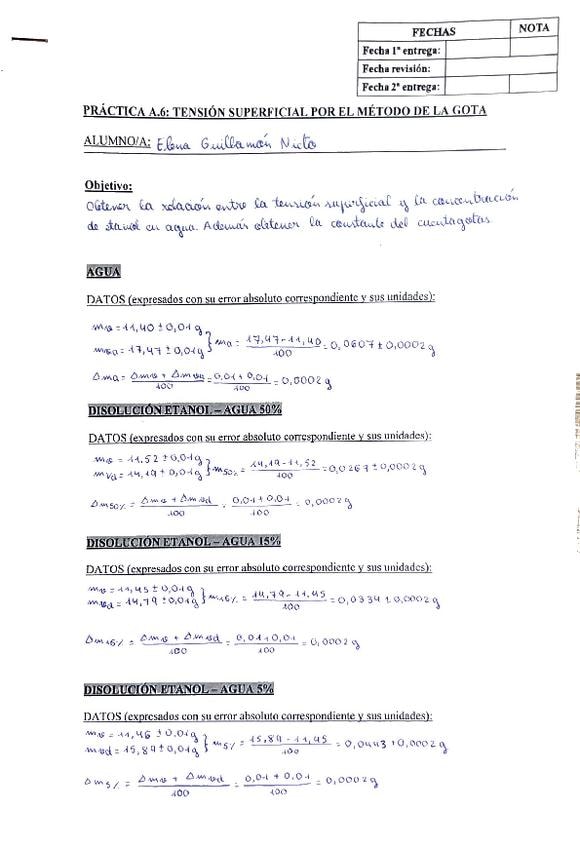 FECHAS NOTA
Fecha 1ª entrega:
Fecha revisión:
Fecha 2ª entrega:
PRÁCTICA A.6: TENSIÓN SUPERFICIAL POR EL MÉTODO DE LA GOTA
ALUMNO/A: Elena Guillamón Nieto
Objetivo:
Obtener la relación entre la tensión superficial y la concentración
de etanol en agua. Además obtener la constante del cuentagotas.
AGUA
DATOS (expresados con su error absoluto correspondiente y sus unidades):
mv = 11,40 ± 0,01 g
mva = 17,47 ± 0,01 g } ma = (17,47 - 11,40)/100 = 0,0607 ± 0,0002 g
Δma = (Δmv + Δmva)/100 = (0,01 + 0,01)/100 = 0,0002 g
DISOLUCIÓN ETANOL – AGUA 50%
DATOS (expresados con su error absoluto correspondiente y sus unidades):
mv = 11,52 ± 0,01 g
mvd = 14,19 ± 0,01 g } m50% = (14,19 - 11,52)/100 = 0,0267 ± 0,0002 g
Δm50% = (Δmv + Δmvd)/100 = (0,01 + 0,01)/100 = 0,0002 g
DISOLUCIÓN ETANOL – AGUA 15%
DATOS (expresados con su error absoluto correspondiente y sus unidades):
mv = 11,45 ± 0,01 g
mvd = 14,79 ± 0,01 g } m15% = (14,79 - 11,45)/100 = 0,0334 ± 0,0002 g
Δm15% = (Δmv + Δmvd)/100 = (0,01 + 0,01)/100 = 0,0002 g
DISOLUCIÓN ETANOL – AGUA 5%
DATOS (expresados con su error absoluto correspondiente y sus unidades):
mv = 11,46 ± 0,01 g
mvd = 15,89 ± 0,01 g } m5% = (15,89 - 11,45)/100 = 0,0443 ± 0,0002 g
Δm5% = (Δmv + Δmvd)/100 = (0,01 + 0,01)/100 = 0,0002 g